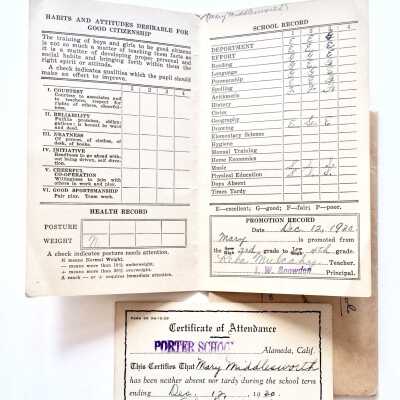 HABITS AND ATTITUDES DESIRABLE FOR
GOOD CITIZENSHIP
The training of boys and girls to be good citizens
is not so much a matter of teaching them facts as
it is a matter of developing proper personal and
social habits and bringing forth within them the
right spirit or attitude.
A check indicates qualities which the pupil should
make an effort to improve.
1 2 3 4
I. COURTESY
Courteous to associates and
to teachers, respect for
rights of others, cheerful-
ness.
II. RELIABILITY
Fulfills promises, obliga-
tions; is honest in word
and deed.
III. NEATNESS
Of person, of clothes, of
desk, of books.
IV. INITIATIVE
Readiness to go ahead with-
out being driven, self direc-
tion.
V. CHEERFUL
CO-OPERATION
Willingness to join with
others in work and play.
VI. GOOD SPORTSMANSHIP
Fair play. Team work.
HEALTH RECORD
POSTURE
WEIGHT N
A check indicates posture needs attention.
N means Normal Weight.
— means more than 10% underweight.
+ means more than 20% overweight.
A much — or + requires immediate attention.
Mary Middlesworth
SCHOOL RECORD
1 2 3 4
DEPARTMENT
EFFORT
Reading
Language
Penmanship
Spelling
Arithmetic
History
Civics
Geography
Drawing
Elementary Science
Hygiene
Manual Training
Home Economics
Music
Physical Education
Days Absent
Times Tardy
E—excellent; G—good; F—fair; P—poor.
PROMOTION RECORD
Date Dec 12, 1930
Mary is promoted from
the Low High 3rd grade to Low High 4th grade.
Teacher.
Principal.
Certificate of Attendance
PORTER SCHOOL
Alameda, Calif.
This Certifies That Mary Middlesworth
has been neither absent nor tardy during the school term
ending Dec. 12, 1930.